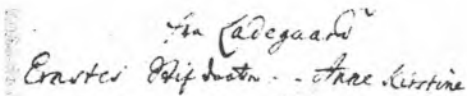 fra Ladegaard
Ernstes Stifdatter - - Anne Kirstine